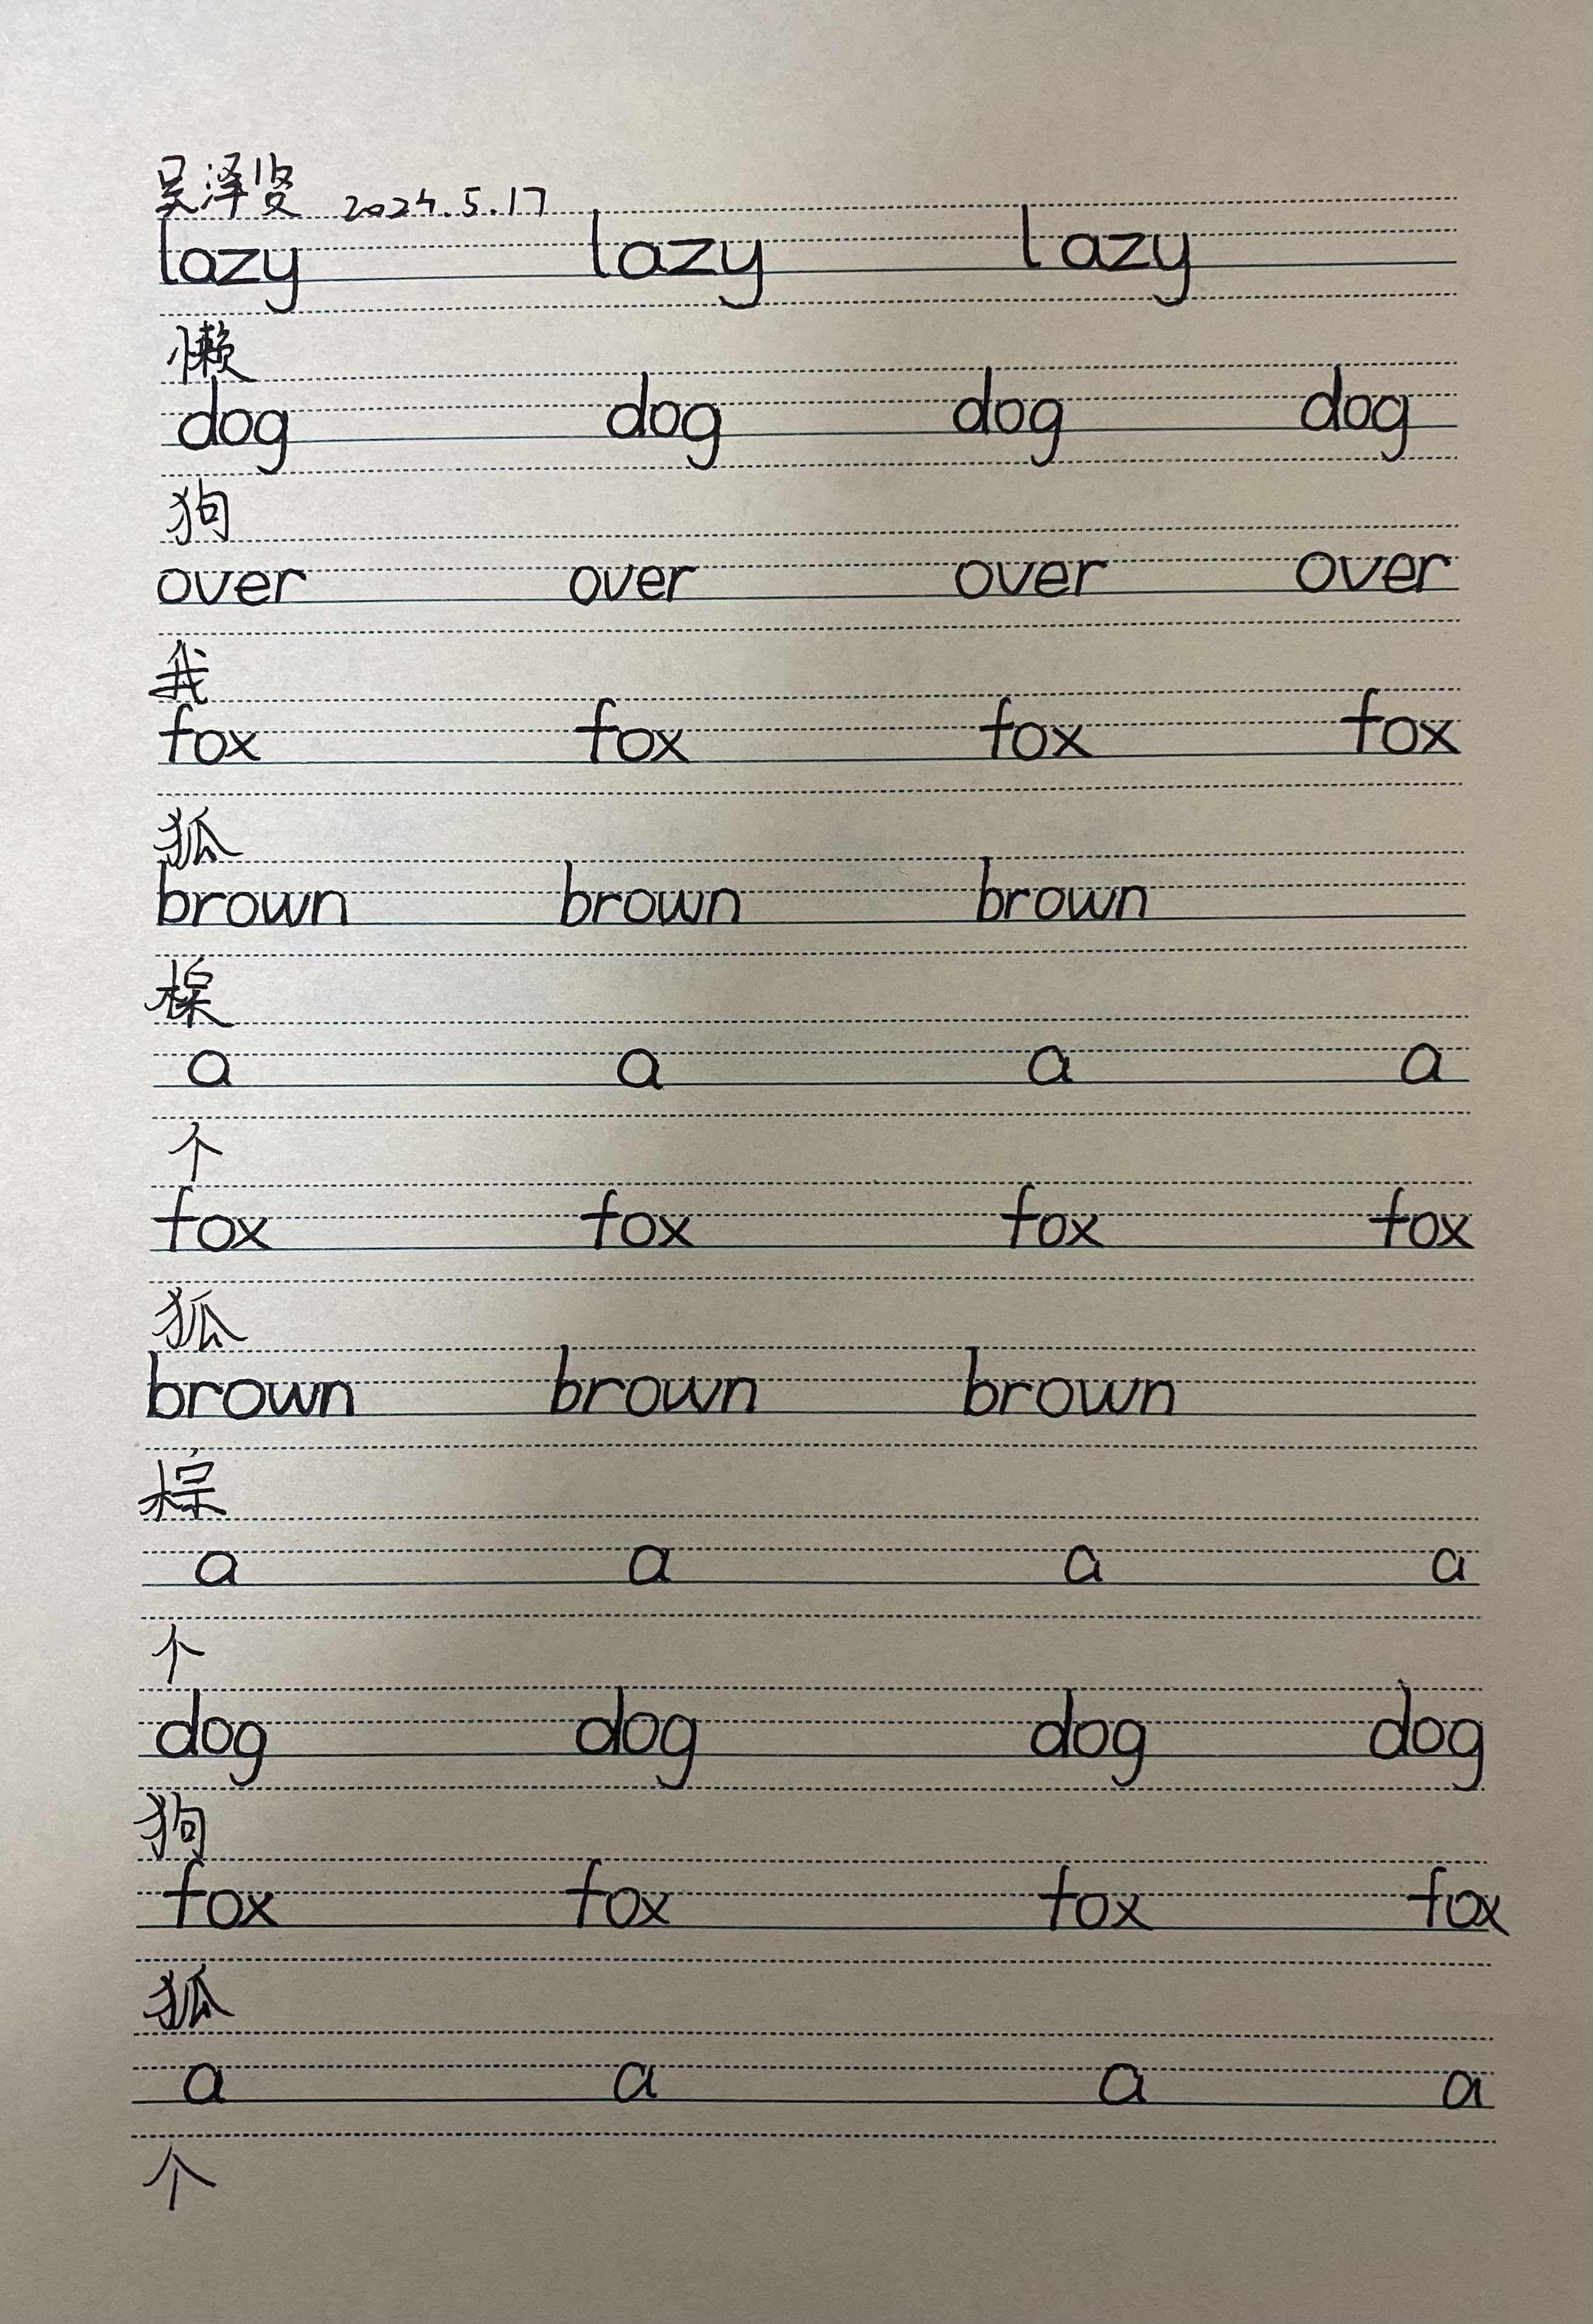 吴泽贤 2024.5.17
lazy lazy lazy
懒
dog dog dog dog
狗
over over over over
我
fox fox fox fox
狐
brown brown brown
棕
a a a a
个
fox fox fox fox
狐
brown brown brown
棕
a a a a
个
dog dog dog dog
狗
fox fox fox fox
狐
a a a a
个